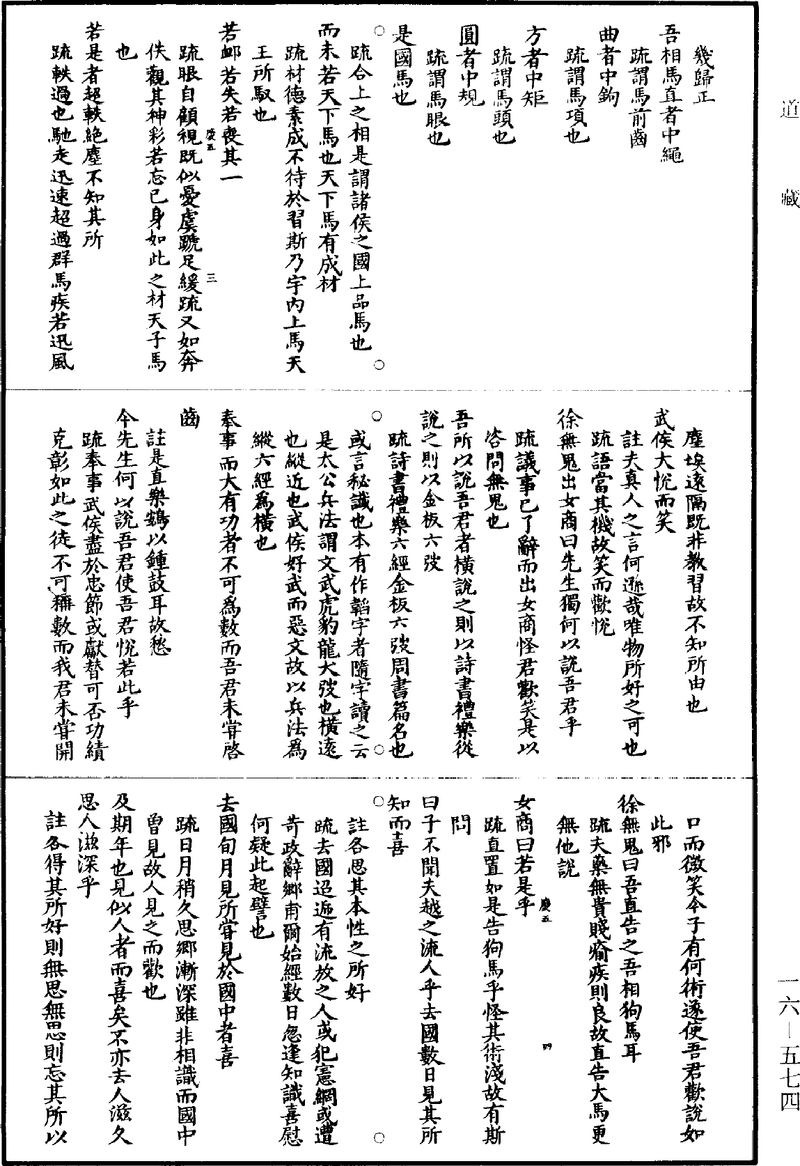 道藏
幾歸正
吾相馬直者中繩
疏謂馬前齒
曲者中鉤
疏謂馬項也
方者中矩
疏謂馬頭也
圓者中規
疏謂馬眼也
是國馬也
疏合上之相是謂諸侯之國上品馬也
而未若天下馬也天下馬有成材
疏材德素成不待於習斯乃宇內上馬天
王所馭也
若䘏若失若喪其一
慶五
三
疏眼自顧視既似憂虞蹏足緩疏又如奔
佚觀其神彩若忘已身如此之材天子馬
也
若是者超軼絕塵不知其所
疏軼過也馳走迅速超過群馬疾若迅風
塵埃遠隔既非教習故不知所由也
武侯大悅而笑
註夫真人之言何遜哉唯物所好之可也
疏語當其機故笑而歡悅
徐無鬼出女商曰先生獨何以說吾君乎
疏議事已了辭而出女商怪君歡笑是以
咨問無鬼也
吾所以說吾君者橫說之則以詩書禮樂從
說之則以金板六弢
疏詩書禮樂六經金板六弢周書篇名也
或言秘讖也本有作韜字者隨字讀之云
是太公兵法謂文武虎豹龍犬弢也橫遠
也縱近也武侯好武而惡文故以兵法為
縱六經為橫也
奉事而大有功者不可為數而吾君未嘗啓
齒
註是直樂鷃以鍾鼓耳故愁
今先生何以說吾君使吾君悅若此乎
疏奉事武侯盡於忠節或獻替可否功績
克彰如此之徒不可稱數而我君未嘗開
口而微笑今子有何術遂使吾君歡說如
此邪
徐無鬼曰吾直告之吾相狗馬耳
疏夫藥無貴賤瘉疾則良故直告犬馬更
無他說
女商曰若是乎
慶五
四
疏直置如是告狗馬乎怪其術淺故有斯
問
曰子不聞夫越之流人乎去國數日見其所
知而喜
註各思其本性之所好
疏去國迢遞有流放之人或犯憲綱或遭
苛政辭鄉甫爾始經數日忽逢知識喜慰
何疑此起譬也
去國旬月見所嘗見於國中者喜
疏日月稍久思鄉漸深雖非相識而國中
曾見故人見之而歡也
及期年也見似人者而喜矣不亦去人滋久
思人滋深乎
註各得其所好則無思無思則忘其所以
一六—五七四